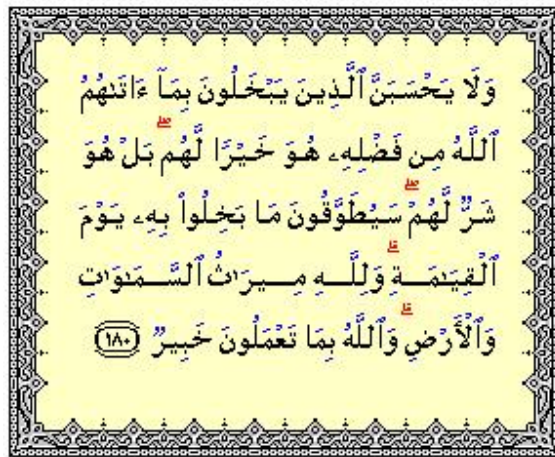 وَلَا يَحْسَبَنَّ ٱلَّذِينَ يَبْخَلُونَ بِمَآ ءَاتَىٰهُمُ
ٱللَّهُ مِن فَضْلِهِۦ هُوَ خَيْرًا لَّهُم ۖ بَلْ هُوَ
شَرٌّ لَّهُمْ ۖ سَيُطَوَّقُونَ مَا بَخِلُوا۟ بِهِۦ يَوْمَ
ٱلْقِيَـٰمَةِ ۗ وَلِلَّهِ مِيرَٰثُ ٱلسَّمَـٰوَٰتِ
وَٱلْأَرْضِ ۗ وَٱللَّهُ بِمَا تَعْمَلُونَ خَبِيرٌ ١٨٠